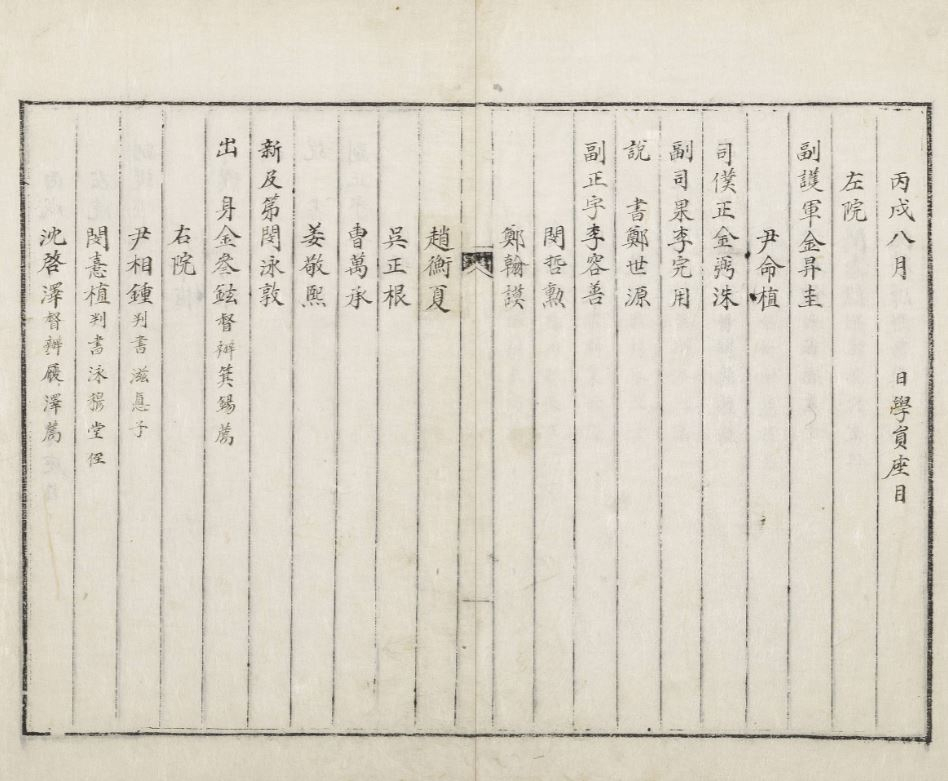 丙戌八月 日學員座目
左院
副護軍金昇圭
尹命植
司僕正金弼洙
副司果李完用
說 書鄭世源
副正字李容善
閔哲勳
鄭翰謨
趙衡夏
吳正根
曺萬承
姜敬熙
新及第閔泳敦
出 身金鋡督辦箕錫薦
右院
尹相鍾判書滋悳子
閔憙植判書泳稷堂侄
沈啓澤督辦履澤薦